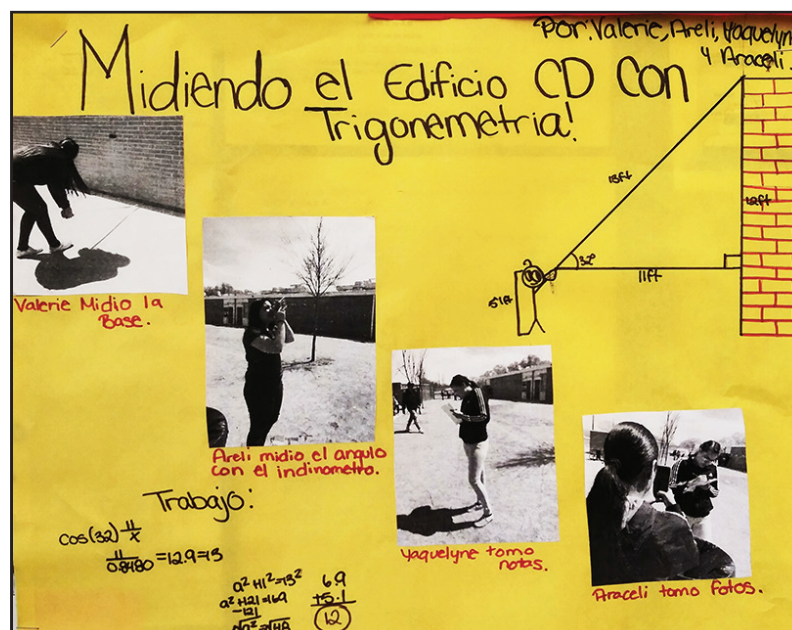 Por: Valerie, Areli, Yaquelyn
y Araceli.
Midiendo el Edificio CD Con
Trigonemetria!
13ft
12ft
32°
11ft
5'1ft
Valerie Midio la
Base.
Areli midio el angulo
con el indinometro.
Yaquelyne tomo
notas.
Araceli tomo fotos.
Trabajo:
cos(32) 11/x
11/0.8480 = 12.9=13
a²+11²=13²
a²+121=169
-121
√a²=√48
6.9
+5.1
12